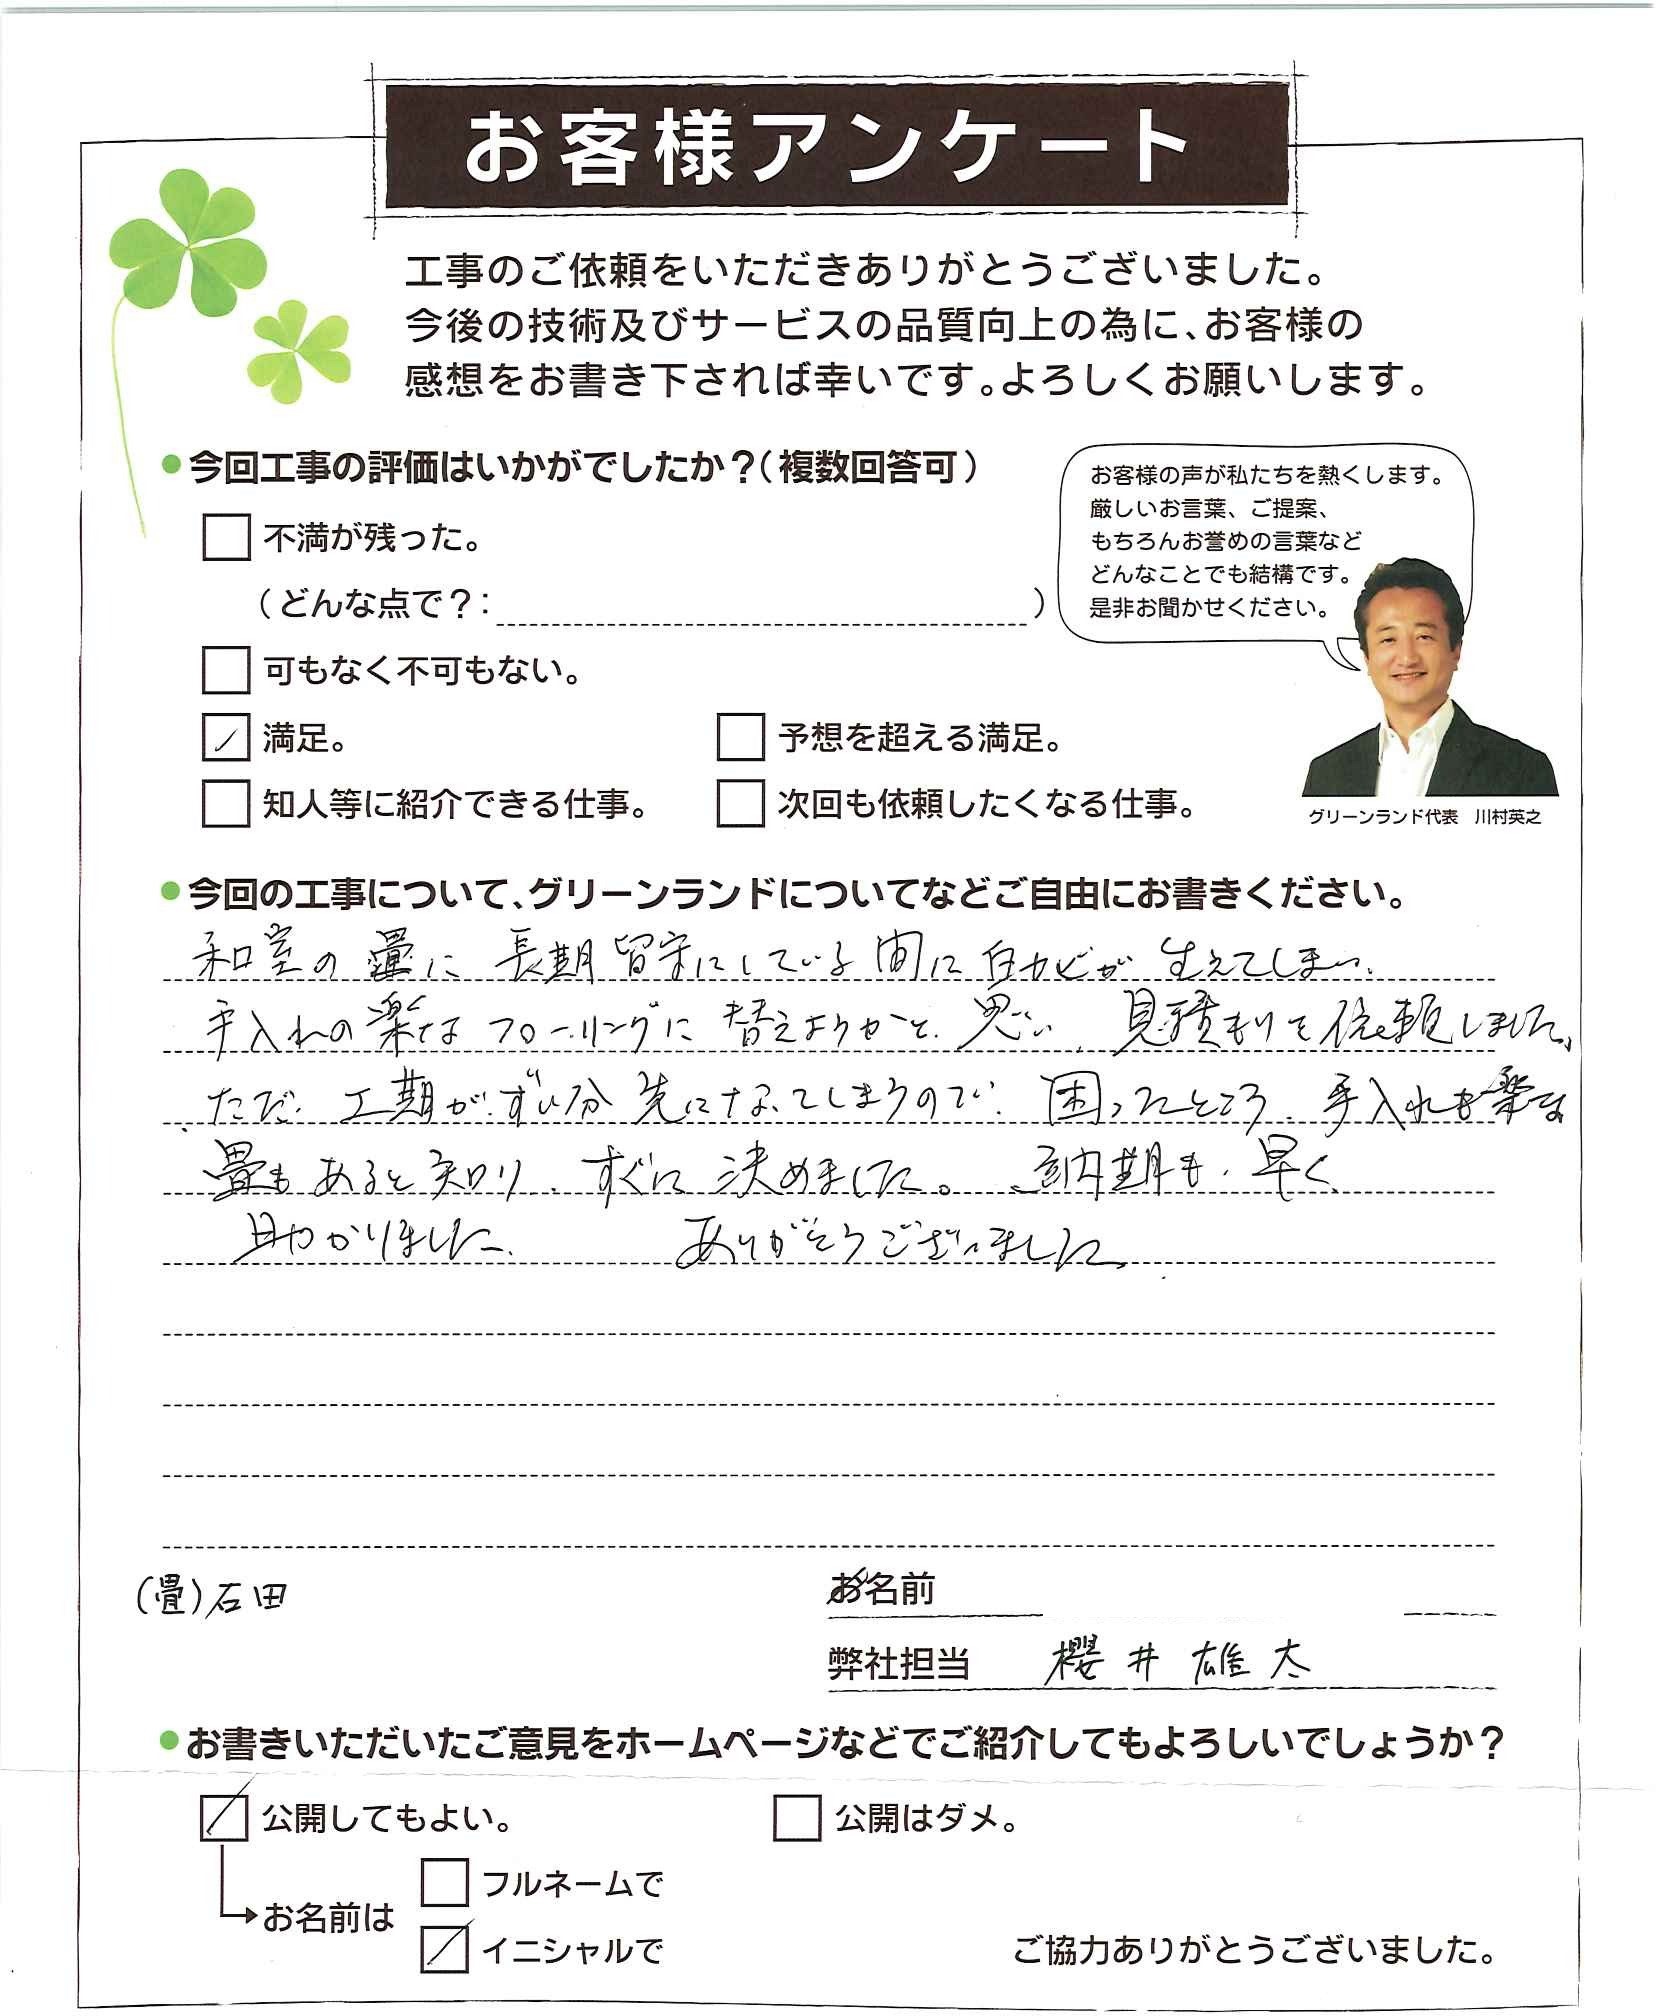 お客様アンケート
工事のご依頼をいただきありがとうございました。
今後の技術及びサービスの品質向上の為に、お客様の
感想をお書き下されば幸いです。よろしくお願いします。
●今回工事の評価はいかがでしたか？（複数回答可）
お客様の声が私たちを熱くします。
厳しいお言葉、ご提案、
もちろんお誉めの言葉など
どんなことでも結構です。
是非お聞かせください。
不満が残った。
（どんな点で？：　）
可もなく不可もない。
満足。　予想を超える満足。
知人等に紹介できる仕事。　次回も依頼したくなる仕事。
グリーンランド代表　川村英之
●今回の工事について、グリーンランドについてなどご自由にお書きください。
和室の畳に長期留守にしている間に白カビが生えてしまい、
手入れの楽なフローリングに替えようかと思い、見積もりを依頼しました。
ただ、工期がずい分先になってしまうので、困ったところ、手入れも楽な
畳もあると知り、すぐに決めました。納期も早く
助かりました。　ありがとうございました
(畳)石田
お名前
弊社担当　櫻井雄太
●お書きいただいたご意見をホームページなどでご紹介してもよろしいでしょうか？
公開してもよい。　公開はダメ。
フルネームで
お名前は
イニシャルで
ご協力ありがとうございました。